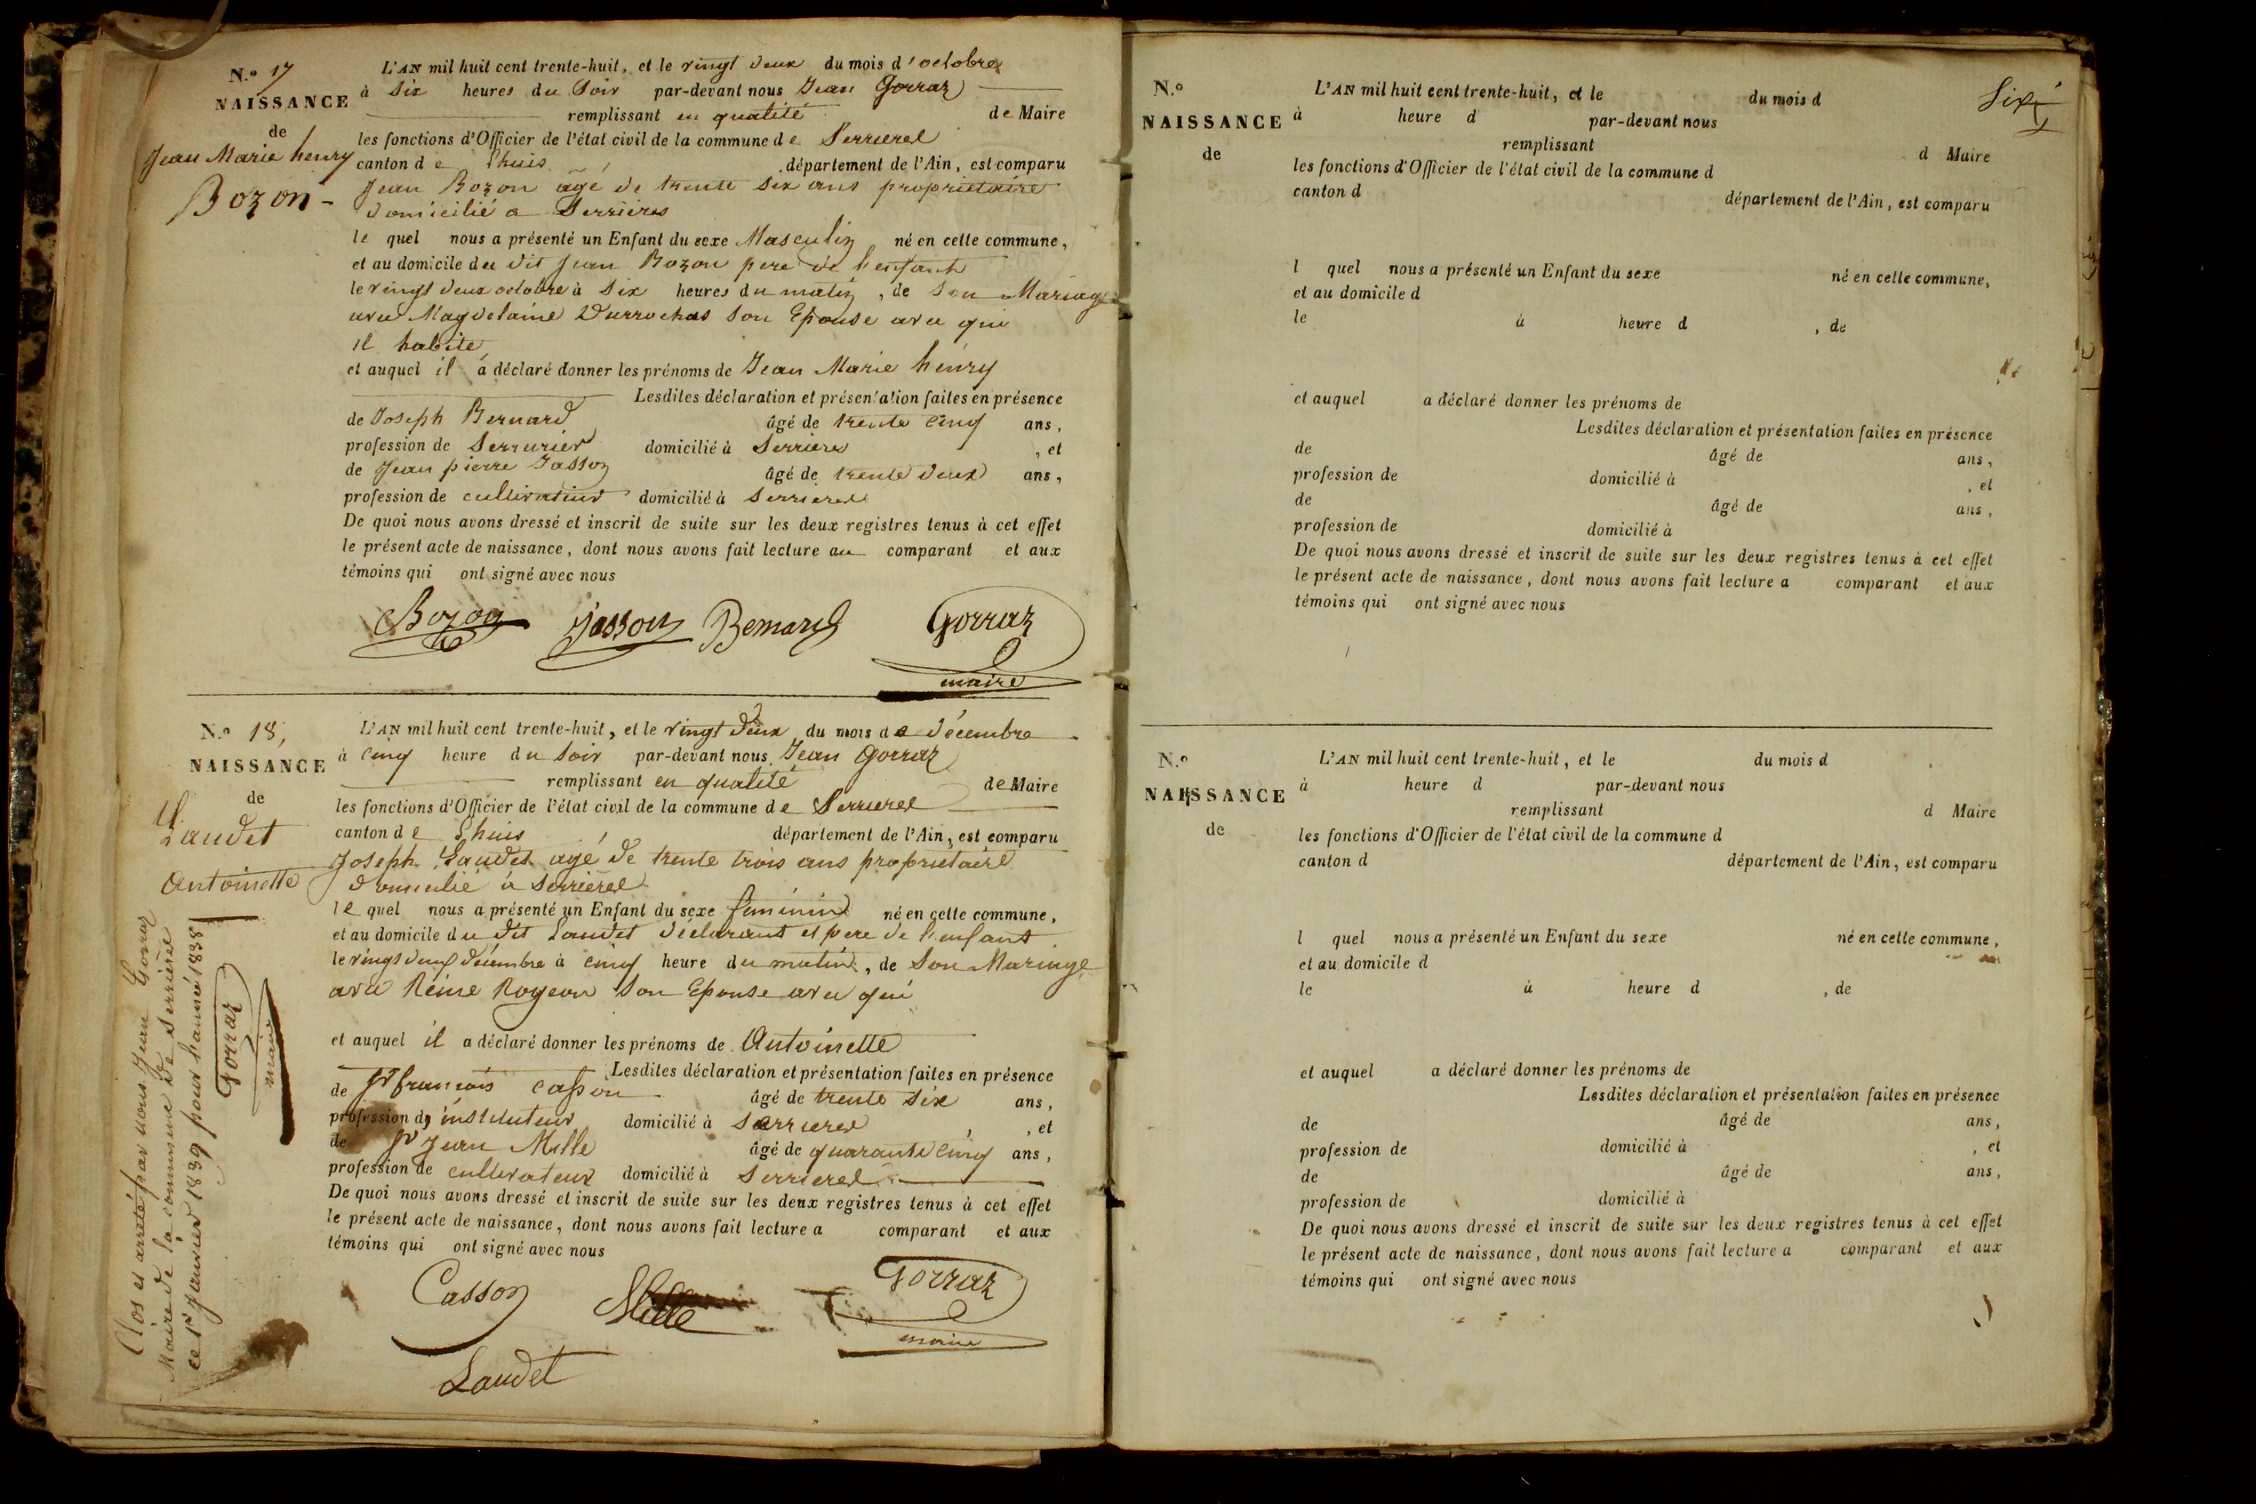 N.º 17
NAISSANCE
de
Jean Marie henry
Bozon
L'AN mil huit cent trente-huit, et le vingt deux du mois d'octobre
à six heures du soir par-devant nous Jean Gorraz
remplissant en qualité de Maire
les fonctions d'Officier de l'état civil de la commune de Serrieres
canton de Lhuis département de l'Ain, est comparu
Jean Bozon agé de trente six ans proprietaire
domicilié a Serrières
le quel nous a présenté un Enfant du sexe Masculin né en cette commune,
et au domicile du dit Jean Bozon pere de l'enfant
le vingt deux octobre à six heures du matin, de son Mariage
avec Magdelaine Durrochas son Epouse avec qui
il habite
et auquel il a déclaré donner les prénoms de Jean Marie henry
Lesdites déclaration et présentation faites en présence
de Joseph Bernard âgé de trente cinq ans,
profession de Serrurier domicilié à Serrieres, et
de Jean pierre Jasson âgé de trente deux ans,
profession de cultivateur domicilié à Serrieres
De quoi nous avons dressé et inscrit de suite sur les deux registres tenus à cet effet
le présent acte de naissance, dont nous avons fait lecture au comparant et aux
témoins qui ont signé avec nous
Bozon Jasson Bernard Gorraz
maire
N.º 18,
NAISSANCE
de
Laudet
Antoinette
L'AN mil huit cent trente-huit, et le vingt deux du mois de décembre
à cinq heure du soir par-devant nous Jean Gorraz
remplissant en qualité de Maire
les fonctions d'Officier de l'état civil de la commune de Serrieres
canton de Lhuis département de l'Ain, est comparu
Joseph Laudet agé de trente trois ans proprietaire
domicilié à Serrières
le quel nous a présenté un Enfant du sexe feminin né en cette commune,
et au domicile du dit Laudet déclarant et pere de l'enfant
le vingt deux décembre à cinq heure du matin, de son Mariage
avec Reine Royeon son Epouse avec qui
et auquel il a déclaré donner les prénoms de Antoinette
Lesdites déclaration et présentation faites en présence
de Sr francois Casson âgé de trente six ans,
profession d' instituteur domicilié à Serrieres, et
de Sr Jean Mille âgé de quarante cinq ans,
profession de cultivateur domicilié à Serrieres
De quoi nous avons dressé et inscrit de suite sur les deux registres tenus à cet effet
le présent acte de naissance, dont nous avons fait lecture a comparant et aux
témoins qui ont signé avec nous
Casson Mille Gorraz
maire
Laudet
Clos et arreté par nous Jean Gorraz
Maire de la commune de Serrière
ce 1r Janvier 1839 pour l'année 1838
Gorraz
maire
Six
N.º
NAISSANCE
de
L'AN mil huit cent trente-huit, et le du mois d
à heure d par-devant nous
remplissant d Maire
les fonctions d'Officier de l'état civil de la commune d
canton d département de l'Ain, est comparu
l quel nous a présenté un Enfant du sexe né en cette commune,
et au domicile d
le à heure d , de
et auquel a déclaré donner les prénoms de
Lesdites déclaration et présentation faites en présence
de âgé de ans,
profession de domicilié à , et
de âgé de ans,
profession de domicilié à
De quoi nous avons dressé et inscrit de suite sur les deux registres tenus à cet effet
le présent acte de naissance, dont nous avons fait lecture a comparant et aux
témoins qui ont signé avec nous
N.º
NAISSANCE
de
L'AN mil huit cent trente-huit, et le du mois d
à heure d par-devant nous
remplissant d Maire
les fonctions d'Officier de l'état civil de la commune d
canton d département de l'Ain, est comparu
l quel nous a présenté un Enfant du sexe né en cette commune,
et au domicile d
le à heure d , de
et auquel a déclaré donner les prénoms de
Lesdites déclaration et présentation faites en présence
de âgé de ans,
profession de domicilié à , et
de âgé de ans,
profession de domicilié à
De quoi nous avons dressé et inscrit de suite sur les deux registres tenus à cet effet
le présent acte de naissance, dont nous avons fait lecture a comparant et aux
témoins qui ont signé avec nous